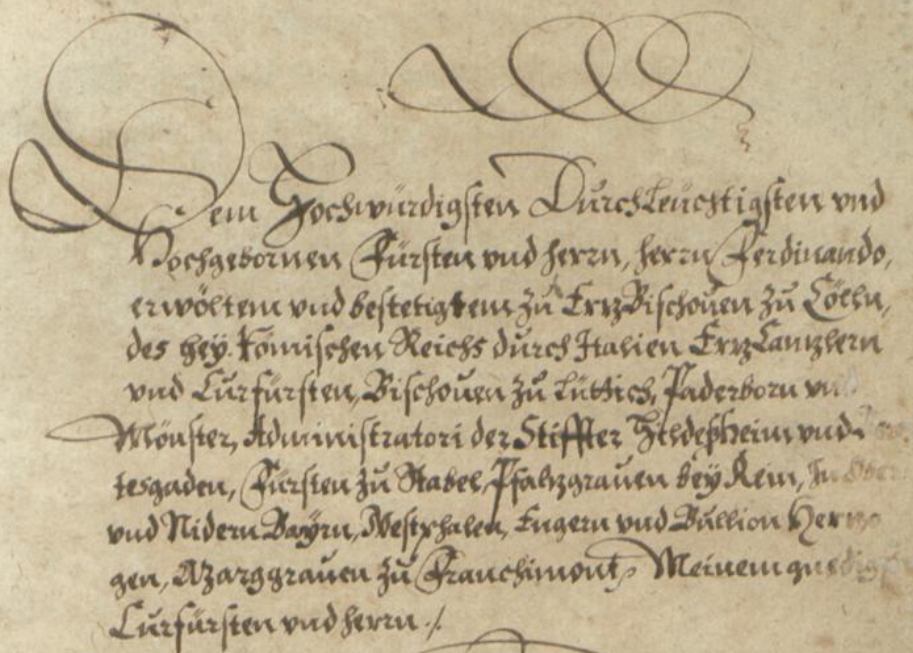 Dem Hochwürdigsten Durchleüchtigsten vnd
Hochgebornen Fürsten vnd herrn, herrn Ferdinando,
erwöltem vnd bestetigtem zu ErzBischouen zu Cölln,
des hey. Römischen Reichs durch Italien ErzCantzlern
vnd Curfürsten, Bischouen zu Lüttich, Paderborn vnd
Mönster, Administratori der Stiffter Hildeßheim vnd
tesgaden, Fürsten zu Stabel, Pfaltzgrauen bey Rein, In Ober
vnd Nidern Bayrn, Westphalen, Engern vnd Bullion Hertzo
gen, Marggrauen zu Franchimont, Meinem gnedigst
Curfürsten vnd herrn ./.